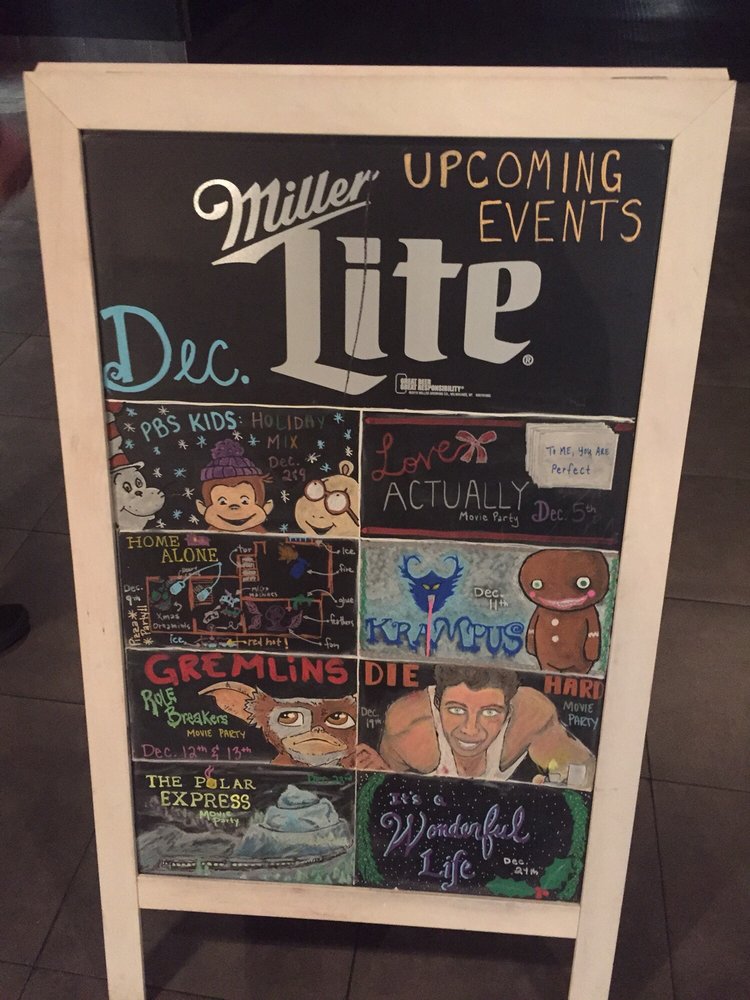 UPCOMING
EVENTS
Miller
Lite
GREAT BEER
GREAT RESPONSIBILITY
Dec.
PBS KIDS: HOLIDAY
MIX
Dec.
Love
ACTUALLY
Movie Party
To ME, YOU ARE
Perfect
Dec. 5th
HOME
ALONE
tar
ice
fire
Dec.
micro
machines
glue
Xmas
Ornaments
feathers
Pizza
Party!!
ice
red hot!
fan
Dec.
11th
KRAMPUS
GREMLINS
Rule
Breakers
MOVIE PARTY
Dec. 12th & 13th
DIE
HARD
Dec.
19th
MOVIE
PARTY
THE POLAR
EXPRESS
Movie
Party
It's a
Wonderful
Life
Dec.
24th